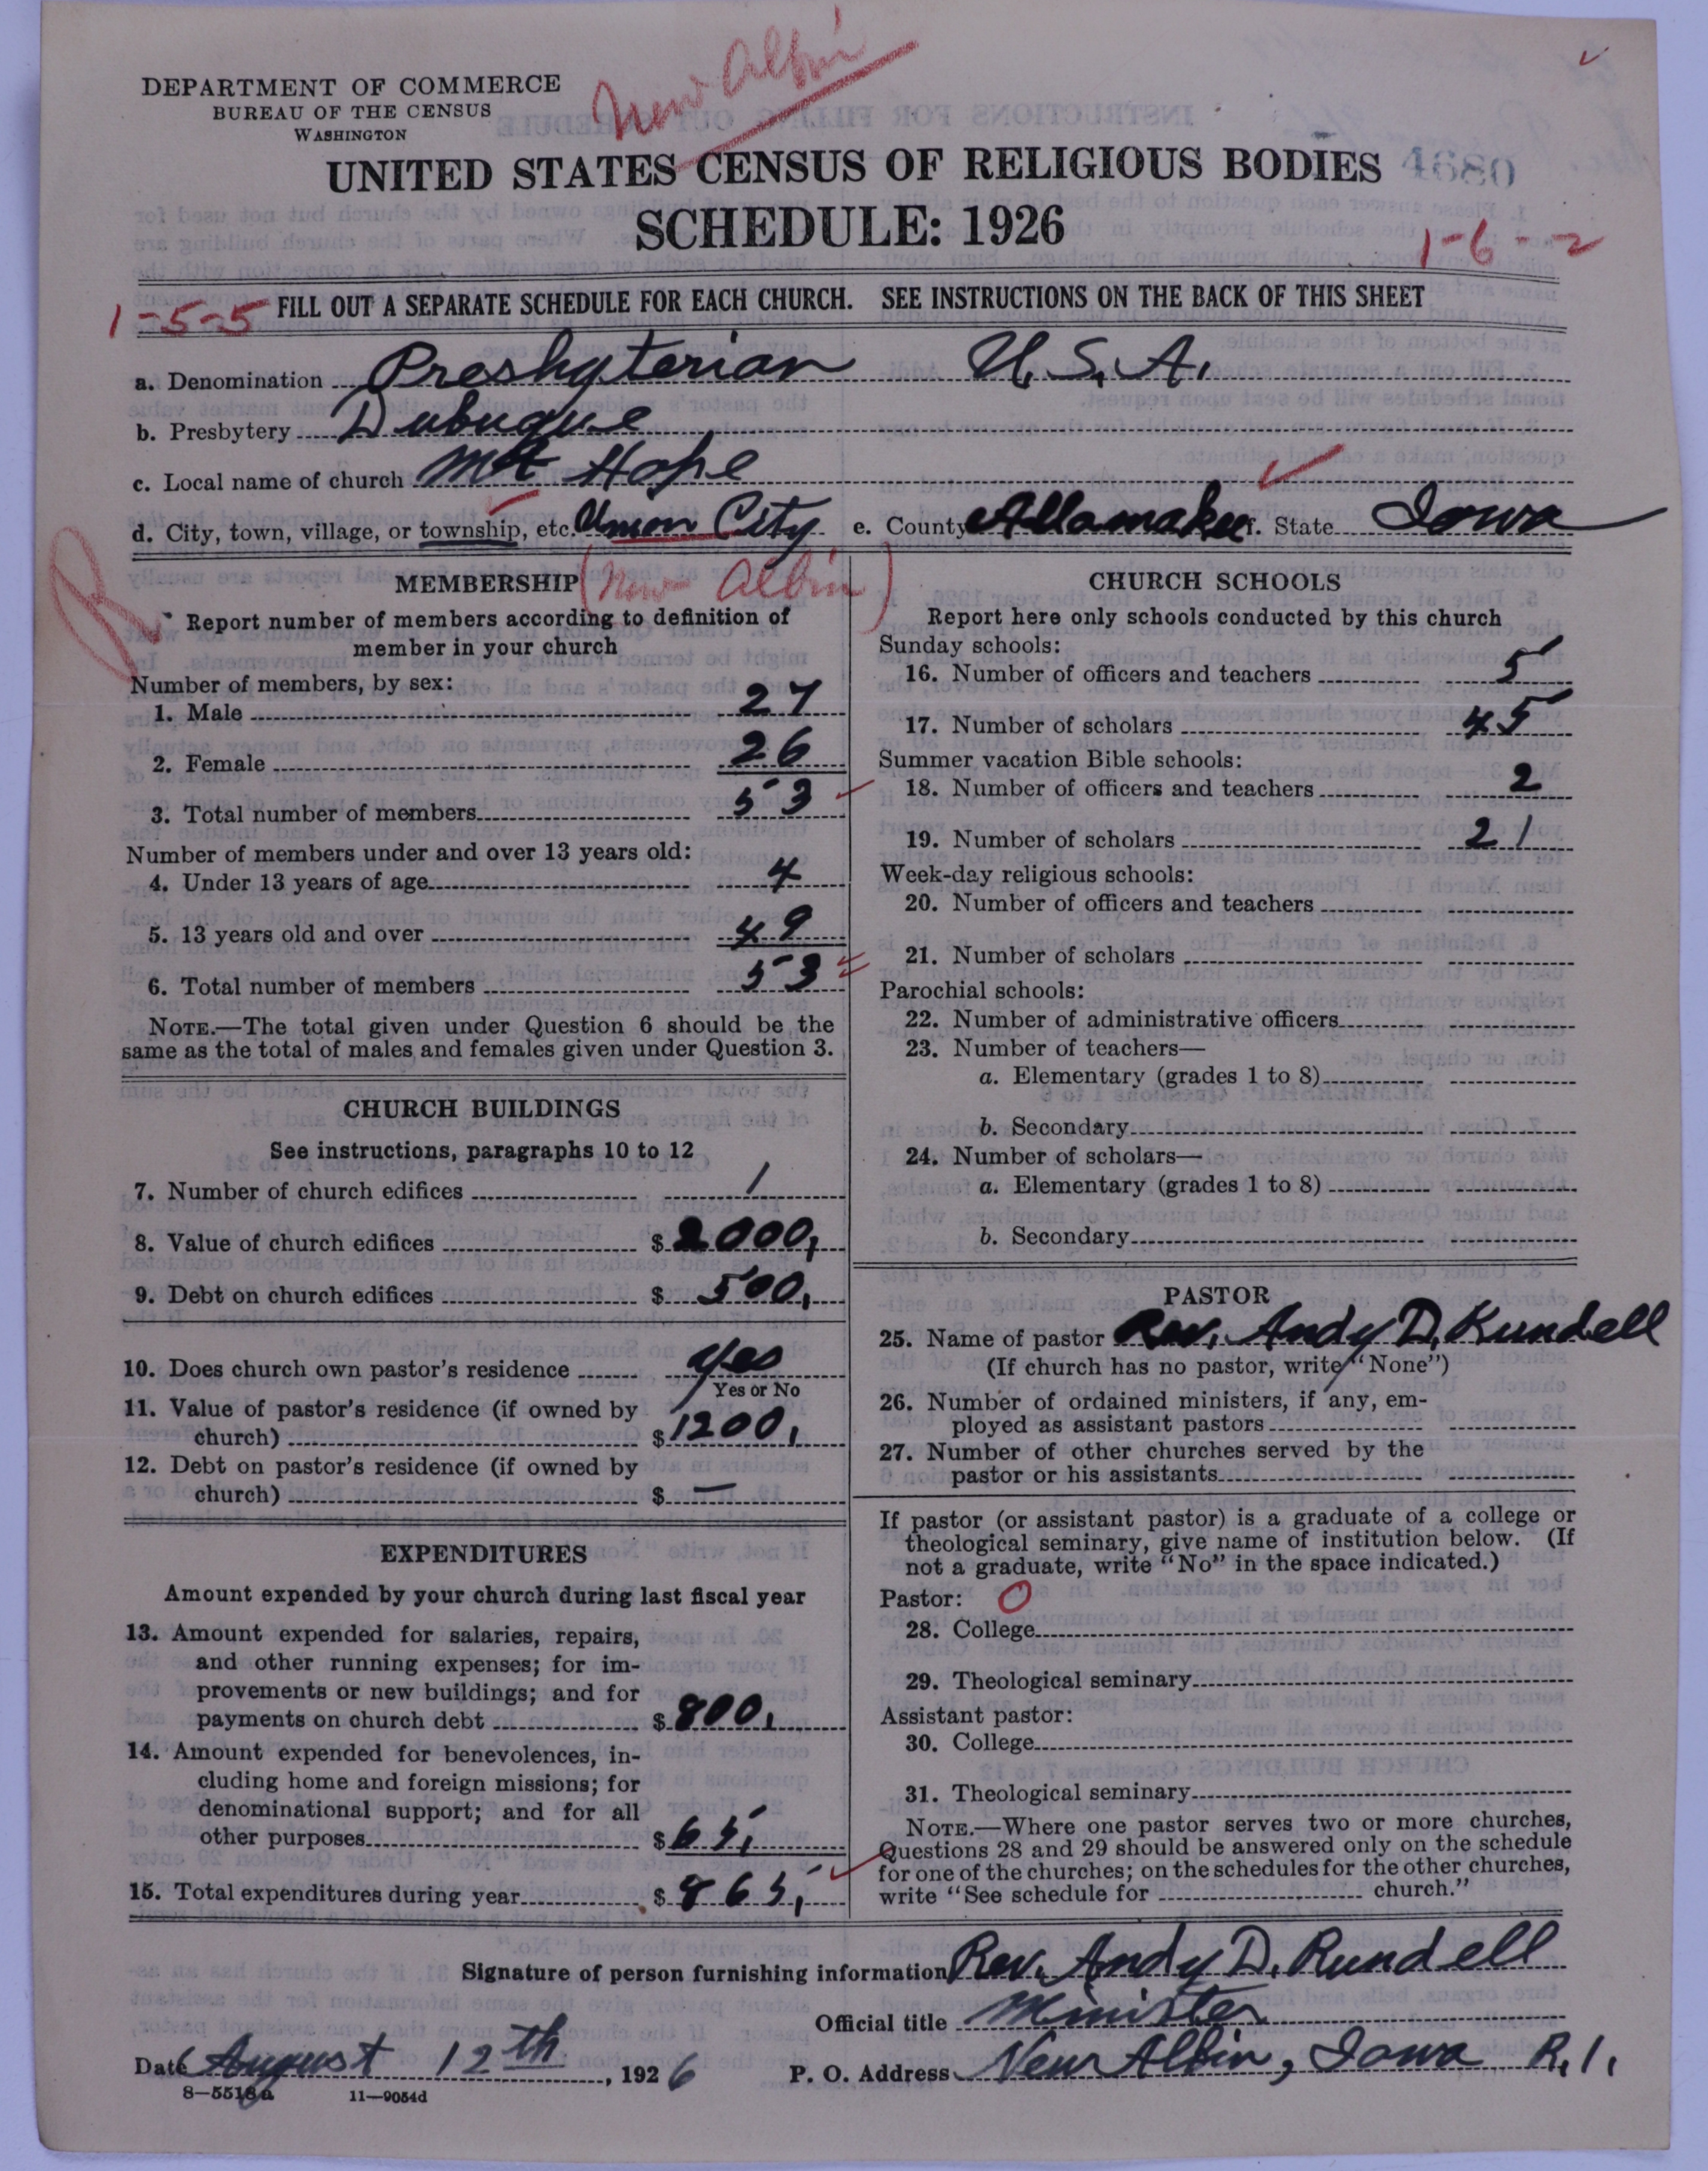 New Albin
DEPARTMENT OF COMMERCE
BUREAU OF THE CENSUS
WASHINGTON
UNITED STATES CENSUS OF RELIGIOUS BODIES 4680
SCHEDULE: 1926
1-6-2
1-5-5 FILL OUT A SEPARATE SCHEDULE FOR EACH CHURCH. SEE INSTRUCTIONS ON THE BACK OF THIS SHEET
a. Denomination Presbyterian U.S.A.
b. Presbytery Dubuque
c. Local name of church Mt Hope
d. City, town, village, or township, etc. Union City e. County Allamakee f. State Iowa
R
MEMBERSHIP (New Albin)
Report number of members according to definition of
member in your church
Number of members, by sex:
1. Male 27
2. Female 26
3. Total number of members 53
Number of members under and over 13 years old:
4. Under 13 years of age 4
5. 13 years old and over 49
6. Total number of members 53
NOTE.—The total given under Question 6 should be the
same as the total of males and females given under Question 3.
CHURCH BUILDINGS
See instructions, paragraphs 10 to 12
7. Number of church edifices 1
8. Value of church edifices $ 2000,
9. Debt on church edifices $ 500,
10. Does church own pastor's residence yes
Yes or No
11. Value of pastor's residence (if owned by
church) $ 1200,
12. Debt on pastor's residence (if owned by
church) $ —
EXPENDITURES
Amount expended by your church during last fiscal year
13. Amount expended for salaries, repairs,
and other running expenses; for im-
provements or new buildings; and for
payments on church debt $ 800,
14. Amount expended for benevolences, in-
cluding home and foreign missions; for
denominational support; and for all
other purposes $ 65,
15. Total expenditures during year $ 865,
CHURCH SCHOOLS
Report here only schools conducted by this church
Sunday schools:
16. Number of officers and teachers 5
17. Number of scholars 45
Summer vacation Bible schools:
18. Number of officers and teachers 2
19. Number of scholars 21
Week-day religious schools:
20. Number of officers and teachers
21. Number of scholars
Parochial schools:
22. Number of administrative officers
23. Number of teachers—
a. Elementary (grades 1 to 8)
b. Secondary
24. Number of scholars—
a. Elementary (grades 1 to 8)
b. Secondary
PASTOR
25. Name of pastor Rev. Andy D. Rundell
(If church has no pastor, write "None")
26. Number of ordained ministers, if any, em-
ployed as assistant pastors
27. Number of other churches served by the
pastor or his assistants
If pastor (or assistant pastor) is a graduate of a college or
theological seminary, give name of institution below. (If
not a graduate, write "No" in the space indicated.)
Pastor: O
28. College
29. Theological seminary
Assistant pastor:
30. College
31. Theological seminary
NOTE.—Where one pastor serves two or more churches,
Questions 28 and 29 should be answered only on the schedule
for one of the churches; on the schedules for the other churches,
write "See schedule for church."
Signature of person furnishing information Rev. Andy D. Rundell
Official title Minister
Date August 12th, 1926 P. O. Address New Albin, Iowa R. 1.
8—5518a 11—9054d